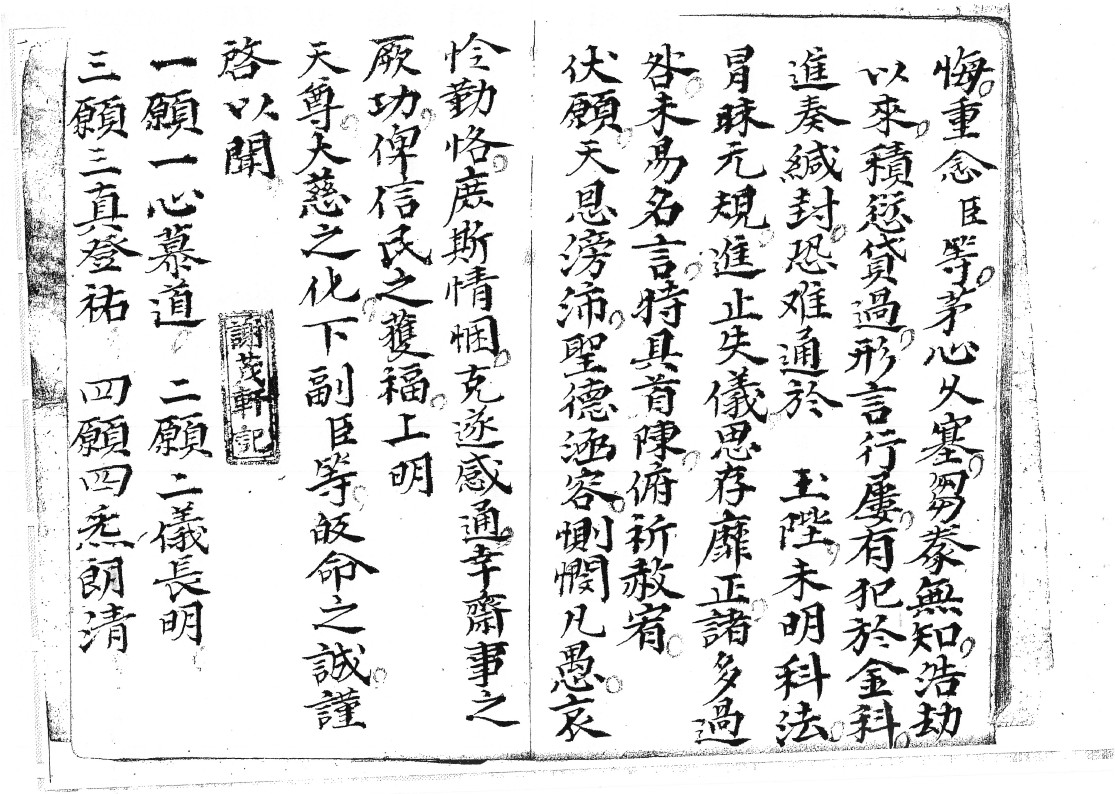 悔重念臣等茅心乆塞芻豢無知浩劫
以來積愆貸過形言行屢有犯於金科
進奏緘封恐难通於　玉陛未明科法
冒昧元規進止失儀思存靡正諸多過
咎未易名言特具首陳俯祈赦宥
伏願天恩滂沛聖德涵容惻憫凡愚哀
怜勤恪庶斯情悃克逐感通幸齋事之
厥功俾信民之獲福上明
天尊大慈之化下副臣等皈命之誠謹
啓以聞
謝茂軒記
一願一心慕道　二願二儀長明
三願三真登祐　四願四炁朗清